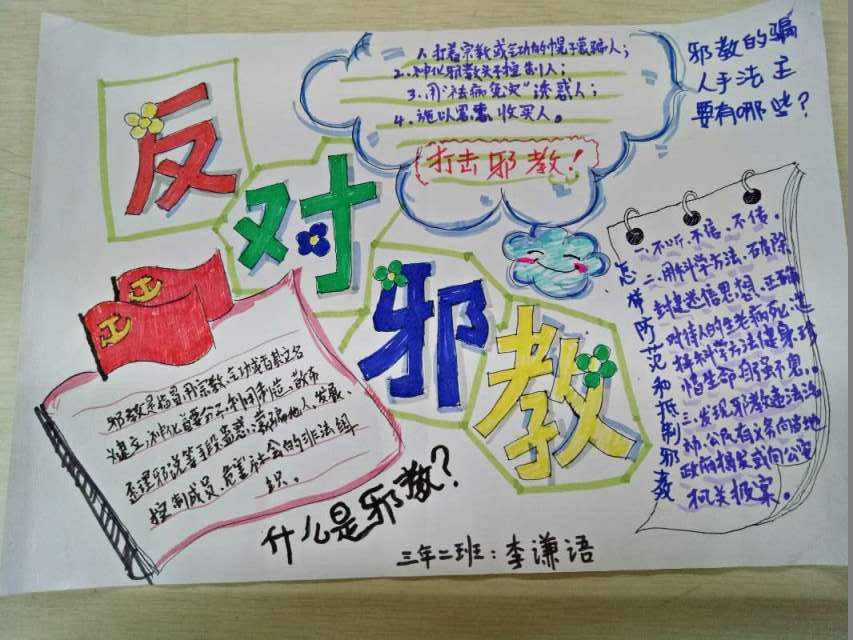 反对邪教
1.打着宗教或气功的幌子蒙骗人；
2.神化邪教头子控制人；
3.用"祛病免灾"诱惑人；
4.施以恩惠，收买人。
打击邪教！
邪教的骗
人手法主
要有哪些？
怎样防范和抵制邪教
一.不听.不信.不传。
二.用科学方法.破除
封建迷信思想.正确
对待人的生老病死.选
择科学方法健身.珍
惜生命.自强不息。
三.发现邪教违法活
动.公民有义务向当地
政府揭发或向公安
机关报案。
邪教是指冒用宗教、气功或者其它名
义建立.神化首要分子.利用制造、散布
歪理邪说等手段蛊惑、蒙骗他人.发展、
控制成员.危害社会的非法组
织。
什么是邪教？
三年二班：李谦语